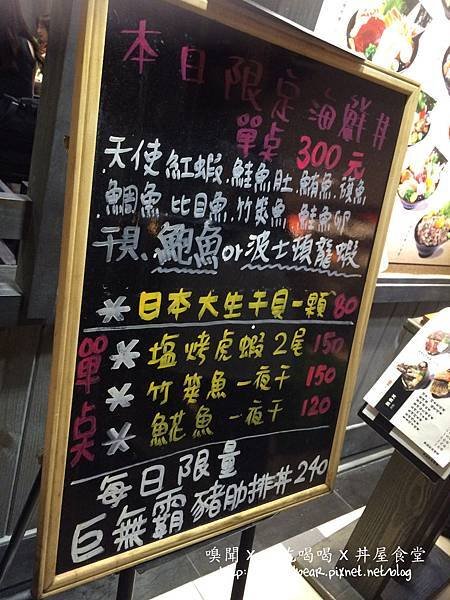 本日限定海鮮丼
單点 300元
天使紅蝦.鮭魚肚.鮪魚.旗魚
.鯛魚.比目魚.竹筴魚.鮭魚卵
干貝.鮑魚or波士頓龍蝦
※日本大生干貝一顆80
單点
※塩烤虎蝦2尾150
※竹筴魚一夜干150
※魠魚一夜干120
每日限量
巨無霸豬肋排丼240
嗅聞X吃喝喝X丼屋食堂
bear.pixnet.net/blog